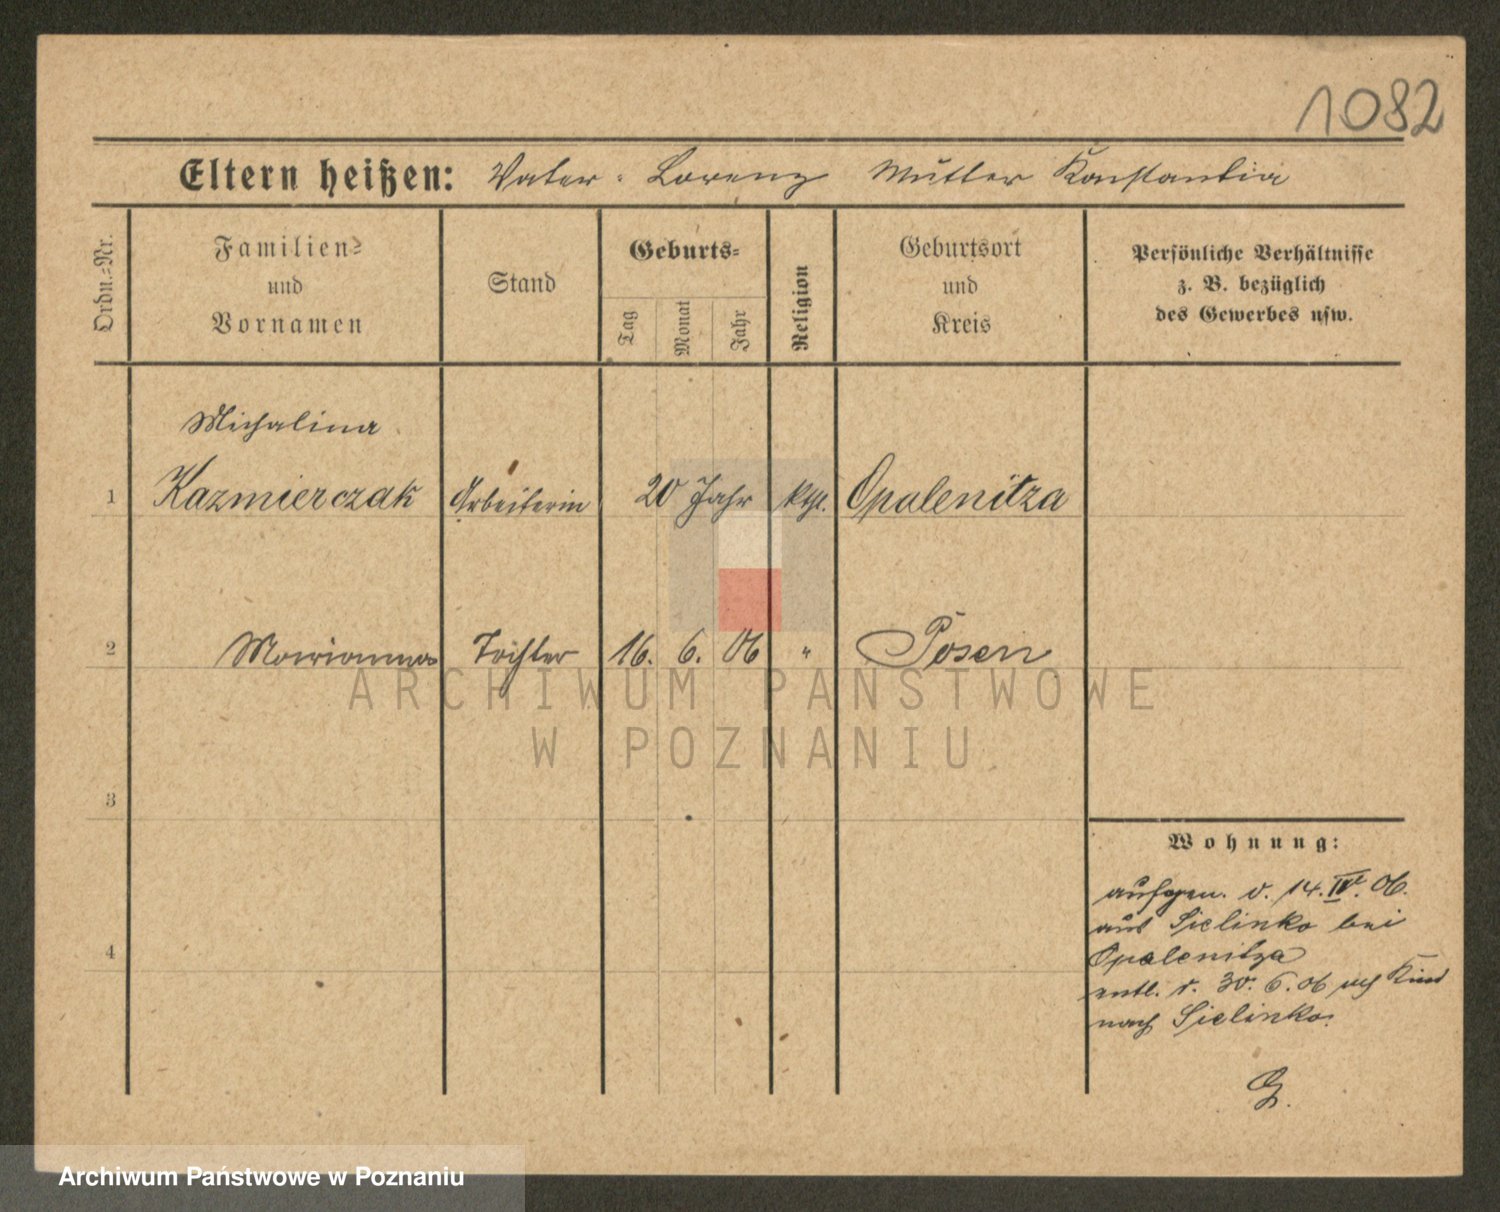 1082
Eltern heißen: Vater - Lorenz Mutter Konstantia
Ordn.-Nr.
Familien-
und
Vornamen
Stand
Geburts-
Tag
Monat
Jahr
Religion
Geburtsort
und
Kreis
Persönliche Verhältnisse
z. B. bezüglich
des Gewerbes usw.
Michalina
1 Kazmierczak Arbeiterin 20 Jahr kth. Opalenitza
2 Marianna Tochter 16. 6. 06 " Posen
ARCHIWUM PAŃSTWOWE
W POZNANIU
3
Wohnung:
aufgen. v. 14. IV. 06.
aus Sielinko bei
4
Opalenitza
entl. d. 30. 6. 06 Kind
nach Sielinko.
Archiwum Państwowe w Poznaniu